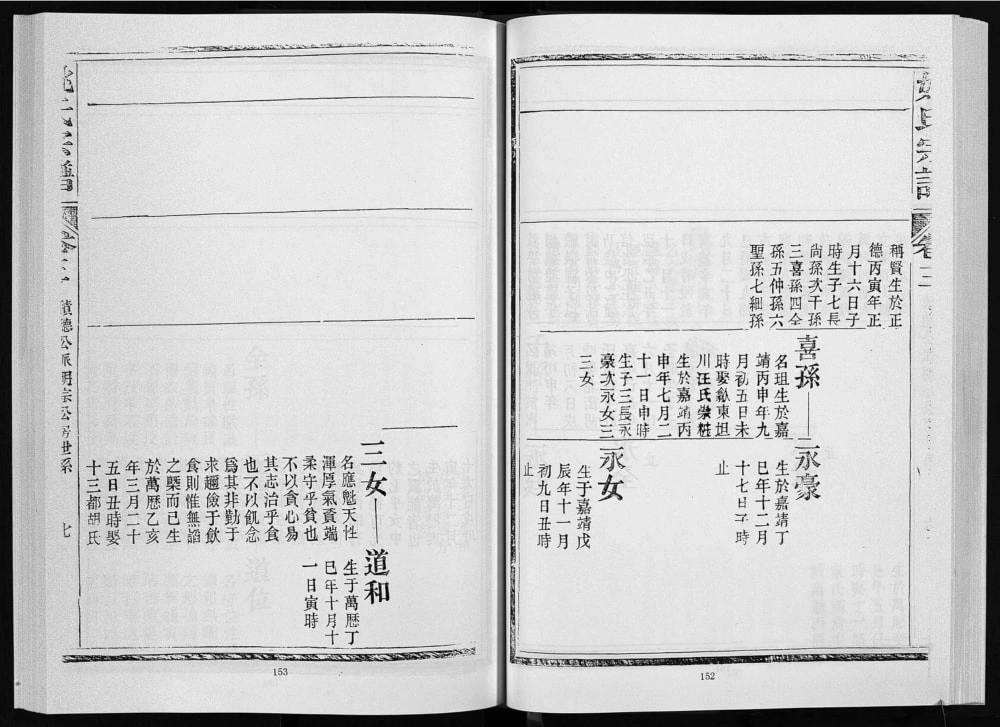 氏宗譜
卷
稱賢生於正
德丙寅年正
月十六日子
時生子七長
尚孫次干孫
三喜孫四全
孫五仲孫六
聖孫七細孫
喜孫
名珇生於嘉
靖丙申年九
月初五日未
時娶歙東坦
川汪氏崇粧
生於嘉靖丙
申年七月二
十一日申時
生子三長永
豪次永女三
三女
永豪
生於嘉靖丁
巳年十二月
十七日子時
止
永女
生于嘉靖戊
辰年十一月
初九日丑時
止
152
三女
名應魁天性
渾厚氣質端
柔守乎貧也
不以貪心易
其志治乎食
也不以飢念
為其非勤于
求趨儉于飲
食則惟無諂
之槩而已生
於萬曆乙亥
年三月二十
五日丑時娶
十三都胡氏
道和
生于萬曆丁
巳年十月十
一日寅時
德公派明宗公房世系
七
153